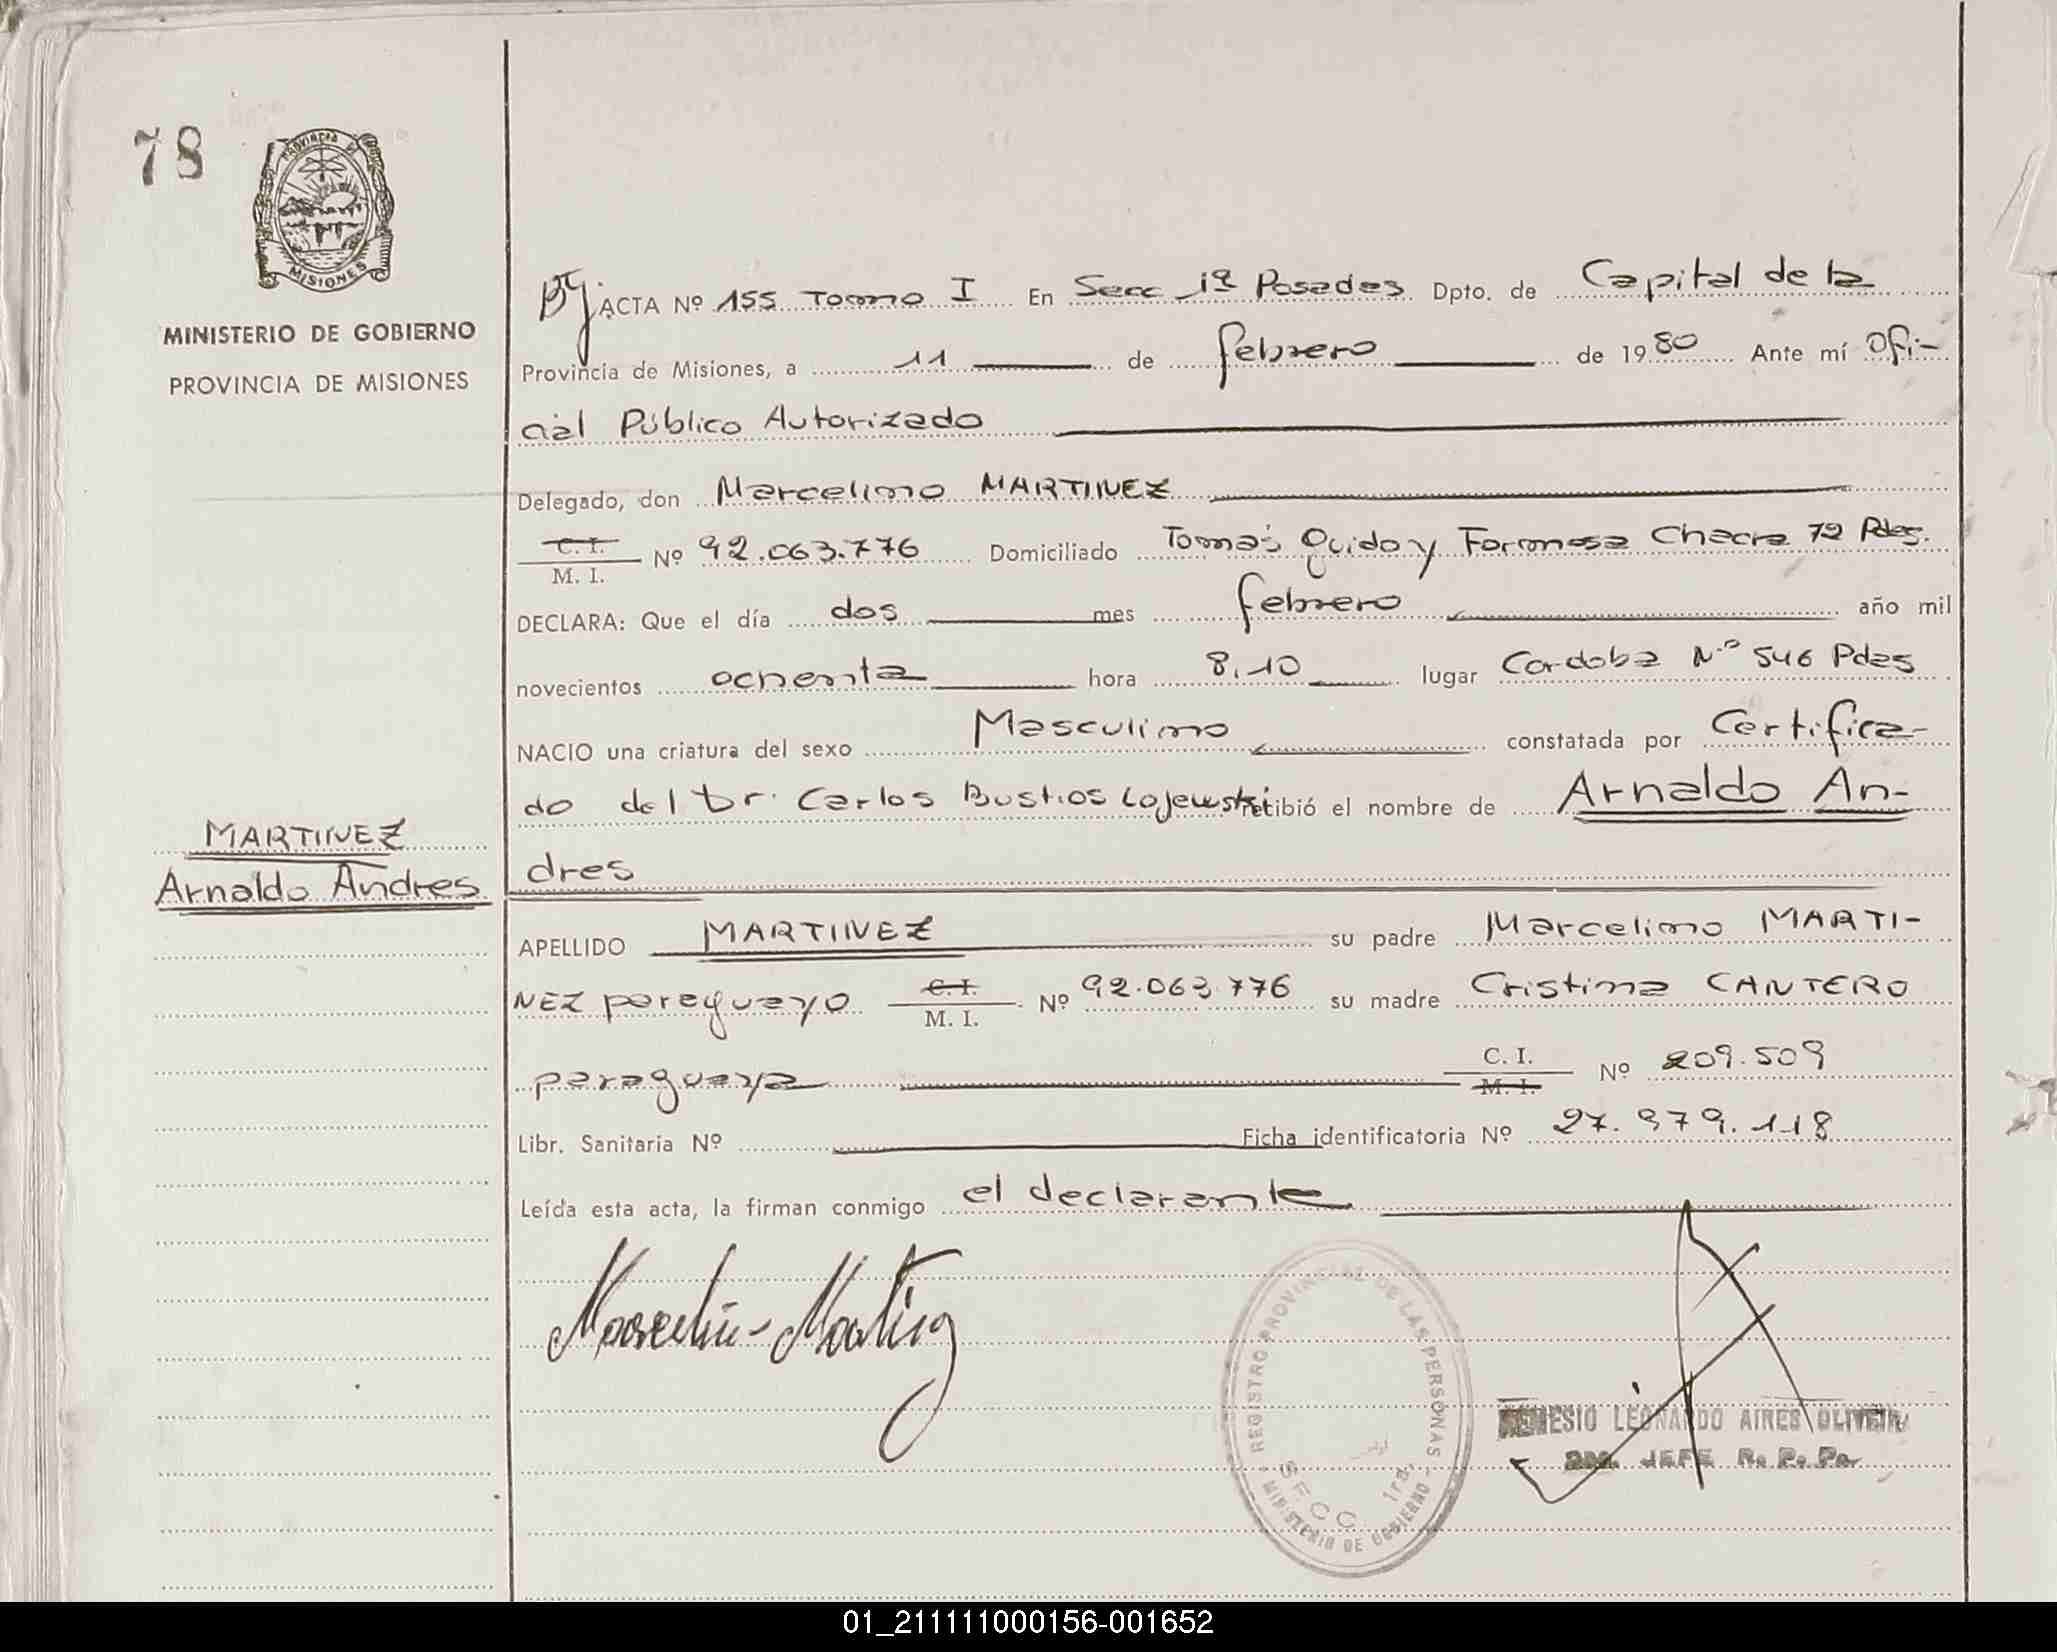 78
PROVINCIA DE
MISIONES
MINISTERIO DE GOBIERNO
PROVINCIA DE MISIONES
ACTA Nº 155 Tomo I En Secc 1ª Posadas Dpto. de Capital de la
Provincia de Misiones, a 11 de febrero de 1980 Ante mí Ofi-
cial Público Autorizado
Delegado, don Marcelino MARTINEZ
C. I.
M. I. Nº 92.063.776 Domiciliado Tomás Guido y Formosa Chacra 72 Pdas.
DECLARA: Que el día dos mes febrero año mil
novecientos ochenta hora 8,10 lugar Cordoba Nº 546 Pdas
NACIO una criatura del sexo Masculino constatada por Certifica-
do del Dr. Carlos Bustios Lojewski recibió el nombre de Arnaldo An-
dres
MARTINEZ
Arnaldo Andres
APELLIDO MARTINEZ su padre Marcelino MARTI-
NEZ paraguayo C. I. M. I. Nº 92.063.776 su madre Cristina CANTERO
paraguaya C. I. M. I. Nº 209.509
Libr. Sanitaria Nº Ficha identificatoria Nº 27.979.118
Leída esta acta, la firman conmigo el declarante
Marcelin- Martinez
REGISTRO PROVINCIAL DE LAS PERSONAS
SECC. 1ra.
MINISTERIO DE GOBIERNO
LEONARDO AIRES OLIVEIRA
JEFE R. P. Ps.
01_211111000156-001652